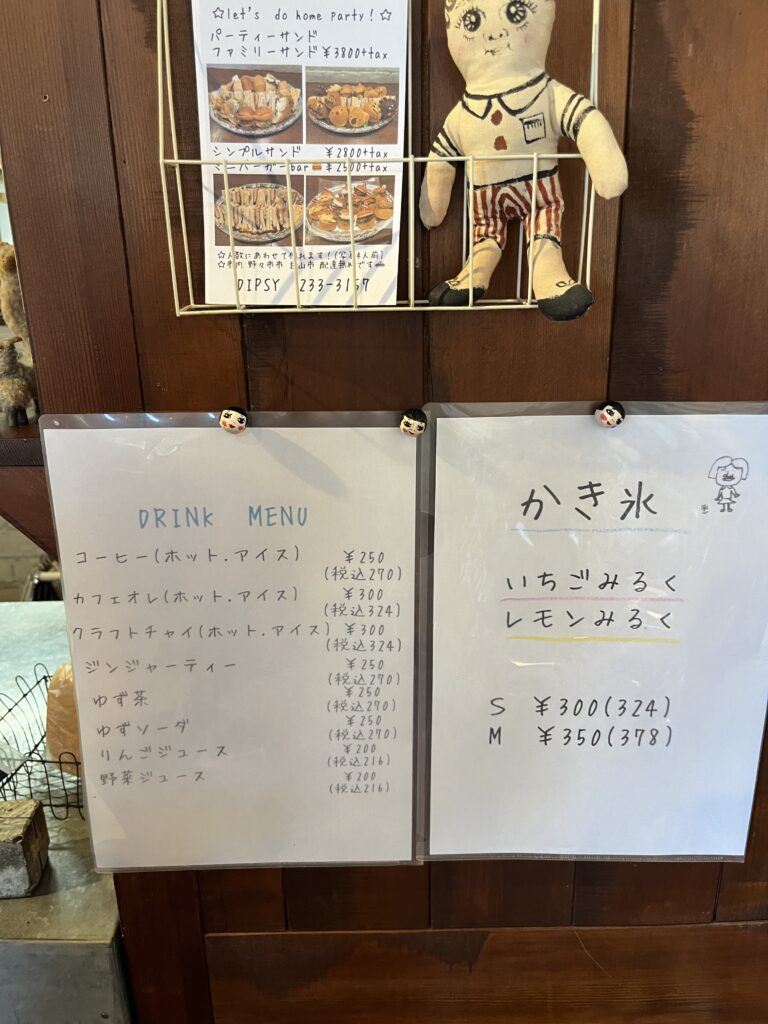 ☆let's do home party!☆
パーティーサンド
ファミリーサンド ¥3800+tax
シンプルサンド ¥2800+tax
ミニバーガーbar ¥2500+tax
☆人数にあわせて作れます!(写真4人前)
☆市内 野々市市 白山市 配達無料です
DIPSY 233-3157
DRINK MENU
コーヒー(ホット.アイス) ¥250
(税込270)
カフェオレ(ホット.アイス) ¥300
(税込324)
クラフトチャイ(ホット.アイス) ¥300
(税込324)
ジンジャーティー ¥250
(税込270)
ゆず茶 ¥250
(税込270)
ゆずソーダ ¥250
(税込270)
りんごジュース ¥200
(税込216)
野菜ジュース ¥200
(税込216)
かき氷
いちごみるく
レモンみるく
S ¥300(324)
M ¥350(378)